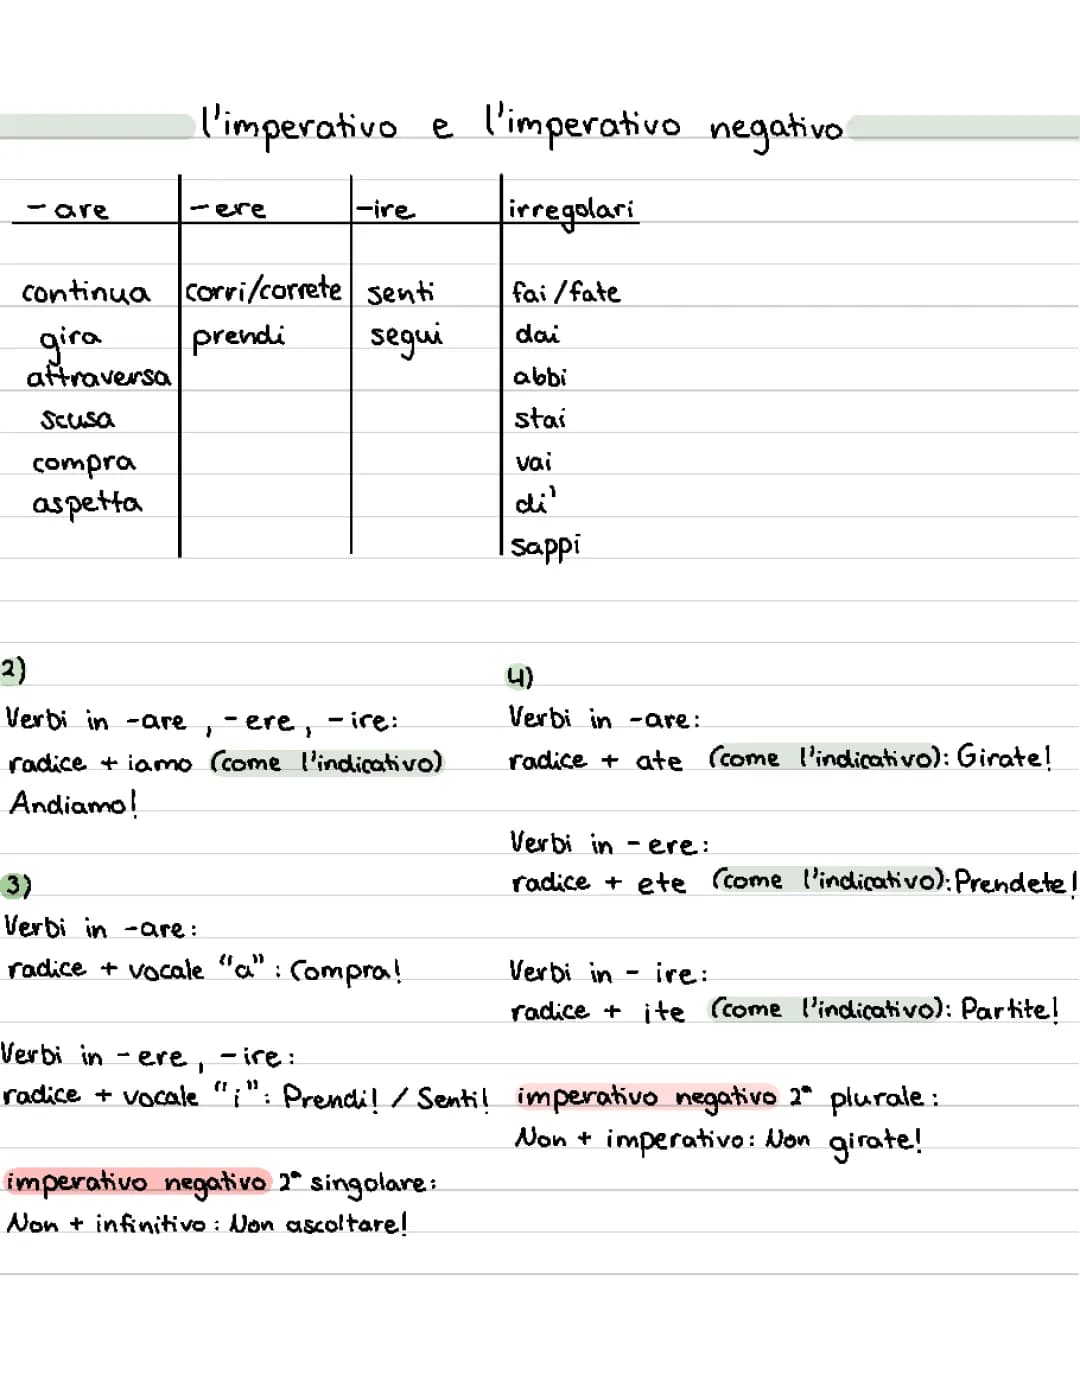 l'imperativo e l'imperativo negativo
-are -ere -ire irregolari
continua corri/correte senti fai/fate
gira prendi segui dai
attraversa abbi
scusa stai
compra vai
aspetta di'
sappi
2)
Verbi in -are, -ere, -ire:
radice + iamo (come l'indicativo)
Andiamo!
3)
Verbi in -are:
radice + vocale "a": Compra!
Verbi in -ere, -ire:
radice + vocale "i": Prendi! / Senti!
imperativo negativo 2ª singolare:
Non + infinitivo: Non ascoltare!
4)
Verbi in -are:
radice + ate (come l'indicativo): Girate!
Verbi in -ere:
radice + ete (come l'indicativo): Prendete!
Verbi in - ire:
radice + ite (come l'indicativo): Partite!
imperativo negativo 2ª plurale:
Non + imperativo: Non girate!